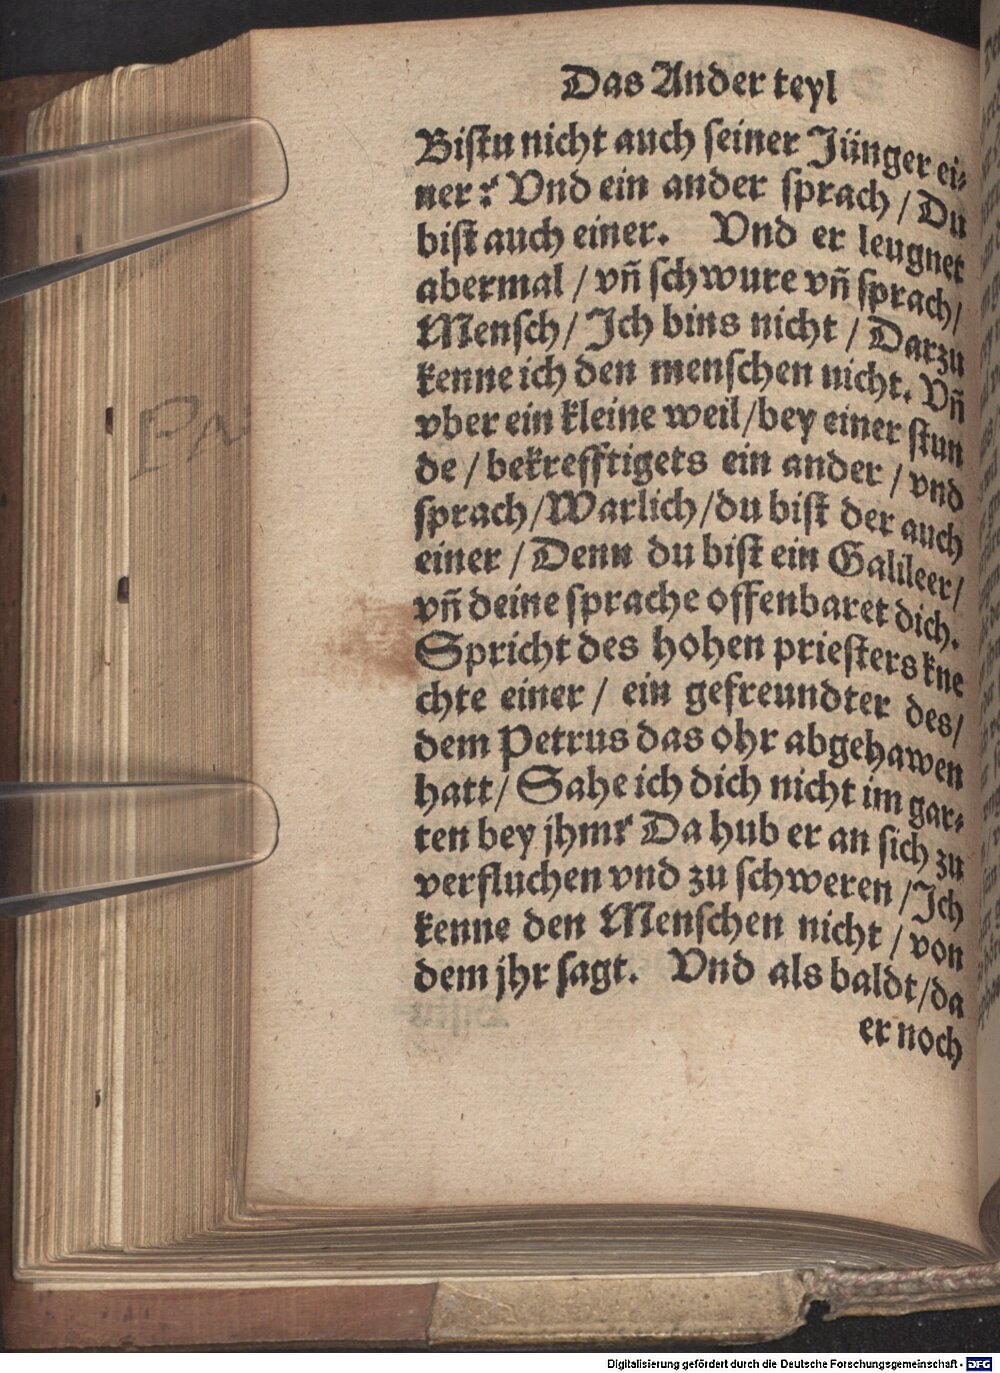 Das Ander teyl
Bistu nicht auch seiner Jünger ei⸗
ner? Vnd ein ander sprach / Du
bist auch einer. Vnd er leugnet
abermal / vñ schwure vñ sprach /
Mensch / Ich bins nicht / Darzu
kenne ich den menschen nicht. Vñ
vber ein kleine weil / bey einer stun
de / bekrefftigets ein ander / vnd
sprach / Warlich / du bist der auch
einer / Denn du bist ein Galileer /
vñ deine sprache offenbaret dich.
Spricht des hohen priesters kne
chte einer / ein gefreundter des /
dem Petrus das ohr abgehawen
hatt / Sahe ich dich nicht im gar⸗
ten bey jhm? Da hub er an sich zu
verfluchen vnd zu schweren / Ich
kenne den Menschen nicht / von
dem jhr sagt. Vnd als baldt / da
er noch
Digitalisierung gefördert durch die Deutsche Forschungsgemeinschaft - DFG